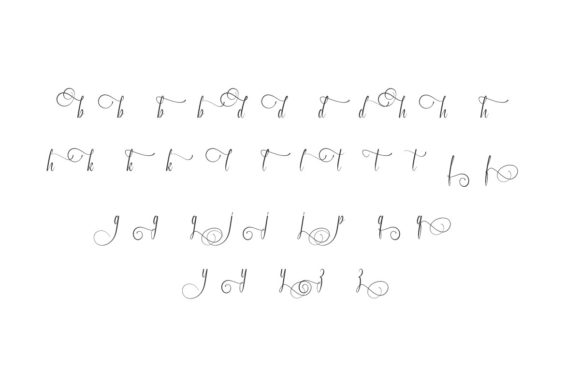 b b b b d d d d h h h
h k k k l l l t t t f f
g g g j j j p q q
y y y z z